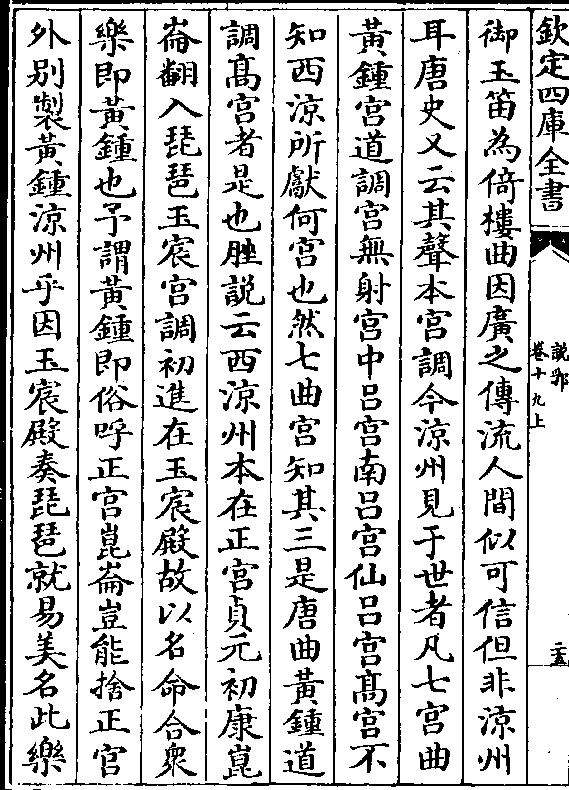 欽定四庫全書
說郛
卷十九上
二十五
御玉笛為倚樓曲因廣之傳流人間似可信但非涼州
耳唐史又云其聲本宮調今涼州見于世者凡七宮曲
黃鍾宮道調宮無射宮中吕宮南吕宮仙吕宮髙宮不
知西涼所獻何宮也然七曲宮知其三是唐曲黃鍾道
調髙宮者是也脞説云西涼州本在正宮貞元初康崑
崙翻入琵琶玉宸宮調初進在玉宸殿故以名命合衆
樂即黃鍾也予謂黃鍾即俗呼正宮崑崙豈能捨正宮
外別製黃鍾涼州乎因玉宸殿奏琵琶就易美名此樂